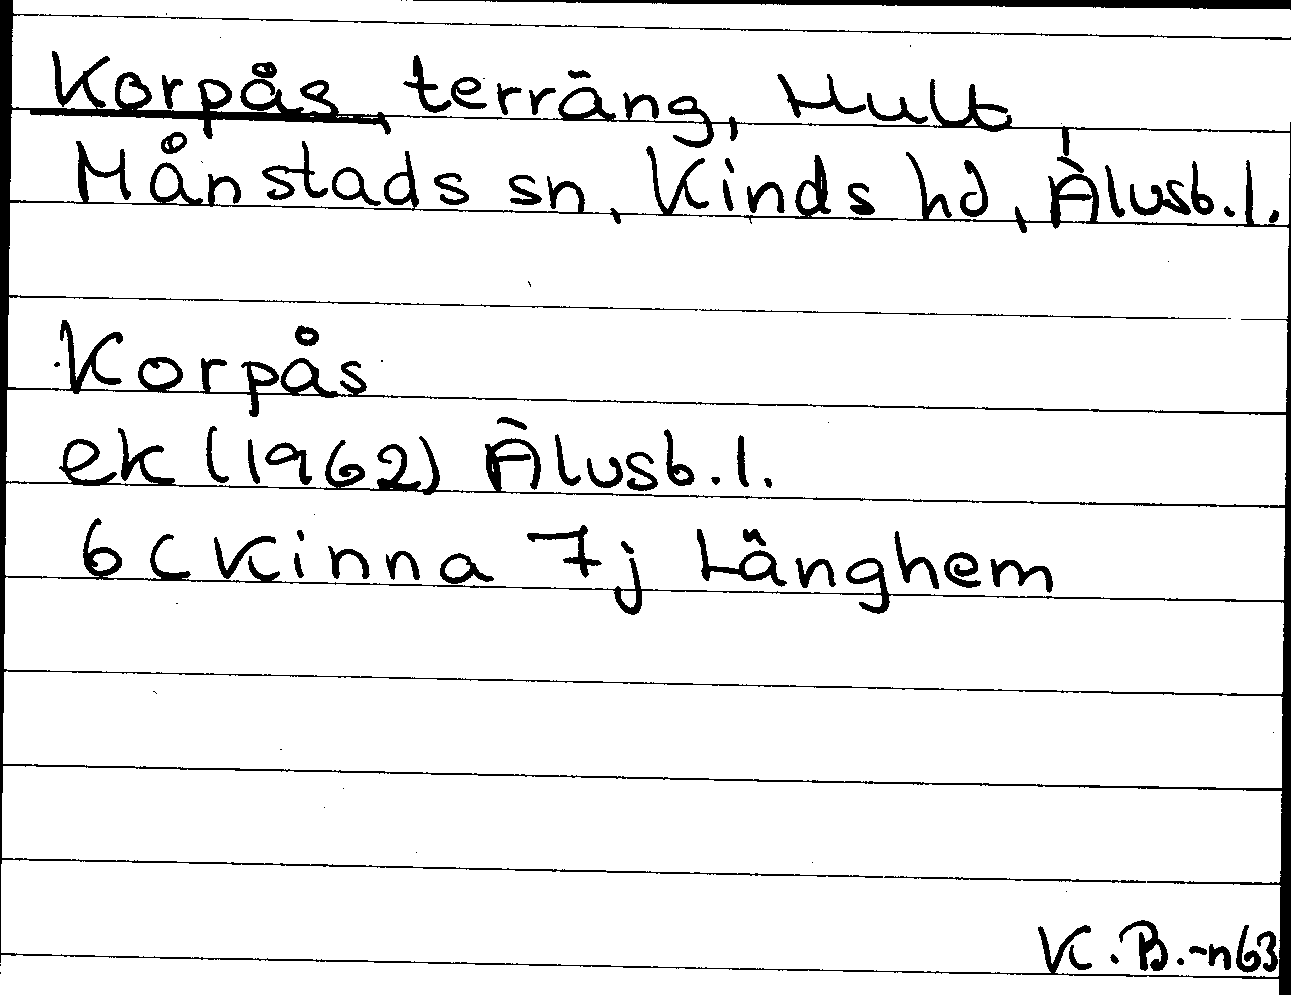 Korpås, terräng, Hult,
Månstads sn, Kinds hd, Älvsb. l.
Korpås
ek (1962) Älvsb. l.
6 C Kinna 7j Länghem
K. B.-n 63